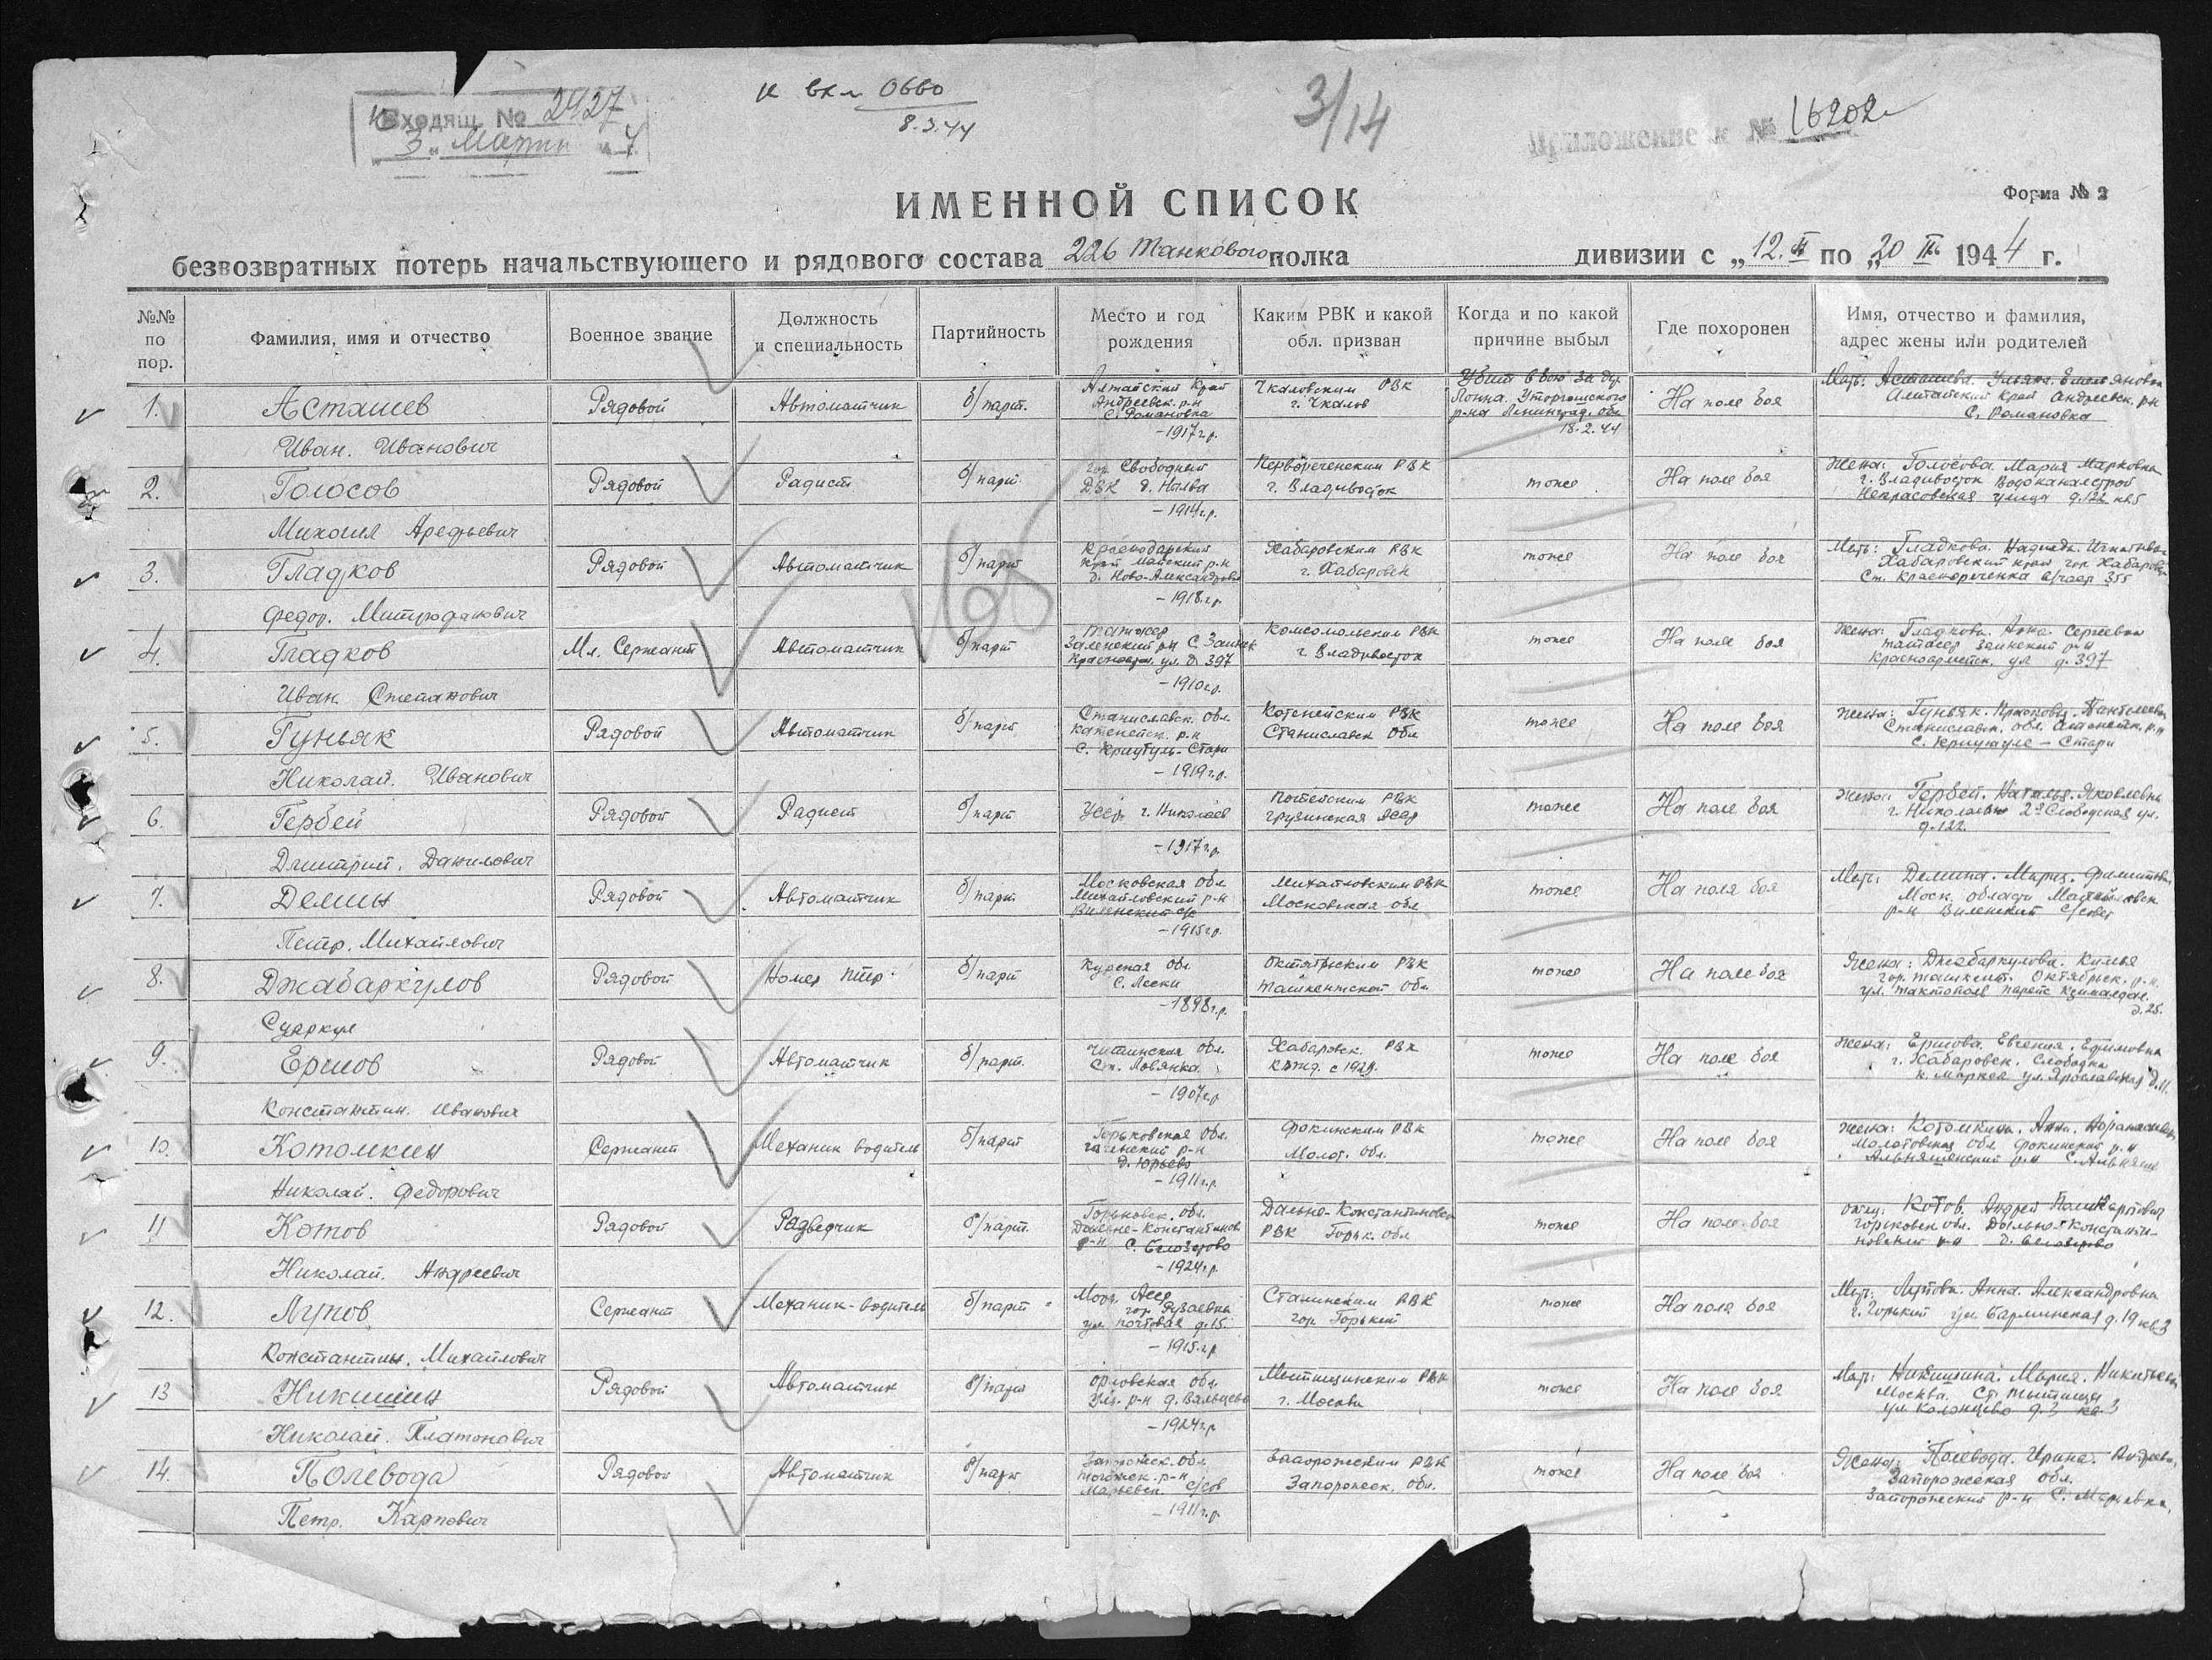 Входящ. № 2927
"3" Марта 4
к вкл 0660
8.3.44
3/14
Приложение к № 16202
ИМЕННОЙ СПИСОК
Форма № 2
безвозвратных потерь начальствующего и рядового состава 226 Танкового полка дивизии с „12. II по „20 II 1944 г.
№№ по пор.
Фамилия, имя и отчество
Военное звание
Должность и специальность
Партийность
Место и год рождения
Каким РВК и какой обл. призван
Когда и по какой причине выбыл
Где похоронен
Имя, отчество и фамилия, адрес жены или родителей
1. Асташев Рядовой Автоматчик б/парт.
Иван. Иванович
Алтайский край
Андреевск. р-н
С. Романовка
-1917 г.р.
Чкаловским РВК
г. Чкалов
Убит в бою за дер.
Уторгошского
р-на Ленинград. обл
18.2.44
На поле боя
Мать: Асташева. Ульяна. Емельяновна
Алтайский край Андреевск. р-н
С. Романовка
2. Голосов Рядовой Радист б/парт.
Михаил Арефьевич
гор. Свободный
ДВК
-1914 г.р.
Первореченским РВК
г. Владивосток
тоже
На поле боя
Жена: Голосова. Мария Марковна
г. Владивосток Водоканалстрой
Некрасовская улица д. 122 кв 5
3. Гладков Рядовой Автоматчик б/парт
Федор. Митрофанович
Краснодарский
край Майский р-н
д. Ново-Александровка
-1918 г.р.
Хабаровским РВК
г. Хабаровск
тоже
На поле боя
Мать: Гладкова. Надежда.
Хабаровский край гор Хабаровск
Ст. Красноречка
4. Гладков Мл. Сержант Автоматчик б/парт
Иван. Степанович
д. 397
-1910 г.р.
Комсомольским РВК
г. Владивосток
тоже
На поле боя
Жена: Гладкова. Анна. Сергеевна
Красноармейск. ул д. 397
5. Гуньяк Рядовой Автоматчик б/парт
Николай. Иванович
Станиславск. обл.
-1919 г.р.
Станиславск обл
тоже
На поле боя
Жена: Гуньяк.
Станиславск. обл.
6. Гербей Рядовой Радист б/парт
Дмитрий. Данилович
г. Николаев
-1917 г.р.
Потийским РВК
Грузинская ССР
тоже
На поле боя
Жена: Гербей. Наталья. Яковлевна
2я Слободская ул.
д. 122.
7. Демин Рядовой Автоматчик б/парт
Петр. Михайлович
Московская обл
Михайловский р-н
Виленский с/с
-1915 г.р.
Михайловским РВК
Московская обл
тоже
На поля боя
Мать: Демина. Мария.
Моск. область
р-н Виленский с/совет
8. Джабаркулов Рядовой Номер ПТР б/парт
Суяркул
Курская обл
С. Лески
-1898 г.р.
Октябрьским РВК
Ташкентской обл.
тоже
На поле боя
Жена: Джабаркулова.
гор. Ташкент. Октябрьск. р-н.
д. 25.
9. Ершов Рядовой Автоматчик б/парт.
Константин. Иванович
Читинская обл.
-1907 г.р
Хабаровск. РВК
тоже
На поле боя
Жена: Ершова. Евгения. Ефимовна
г. Хабаровск. Слободка
к. Маркса ул. Ярославская д. 11.
10. Котомкин Сержант Механик водитель б/парт
Николай. Федорович
Горьковская обл.
д. Юрьево
-1911 г.р.
Фокинским РВК
Молот. обл.
тоже
На поле боя
Жена: Котомкина. Анна.
Молотовская обл. Фокинский р-н
11 Котов Рядовой Разведчик б/парт.
Николай. Андреевич
Горьковск. обл.
Дальне-Константинов.
р-н с. Белозерово
-1924 г.р.
Дальне-Константиновск
РВК Горьк. обл
тоже
На поле боя
отец: Котов. Андрей Поликарпович
Горьковск обл. Дальне-Константи-
новский р-н д. Белозерово
12. Лупов Сержант Механик-водитель б/парт
Константин. Михайлович
Морд. АССР
гор Рузаевка
ул. почтовая д. 15.
-1915 г.р
Сталинским РВК
гор Горький
тоже
На поля боя
Мать: Лупова. Анна. Александровна
г. Горький ул. Барминская д. 19 кв 3
13 Никишин Рядовой Автоматчик б/парт
Николай. Платонович
Орловская обл.
-1924 г.р
Мытищинским РВК
г. Москва
тоже
На поле боя
Мать: Никишина. Мария. Никитьевна
Москва. Ст. Мытищи
ул. Колонцово д. 3 кв. 3
14. Полевода Рядовой Автоматчик б/парт
Петр. Карпович
Запорожск. обл.
-1911 г.р.
Запорожским РВК
Запорожск. обл.
тоже
На поле боя
Жена: Полевода. Ирина. Андреевна,
Запорожская обл.
Запорожский р-н С. Марьевка,